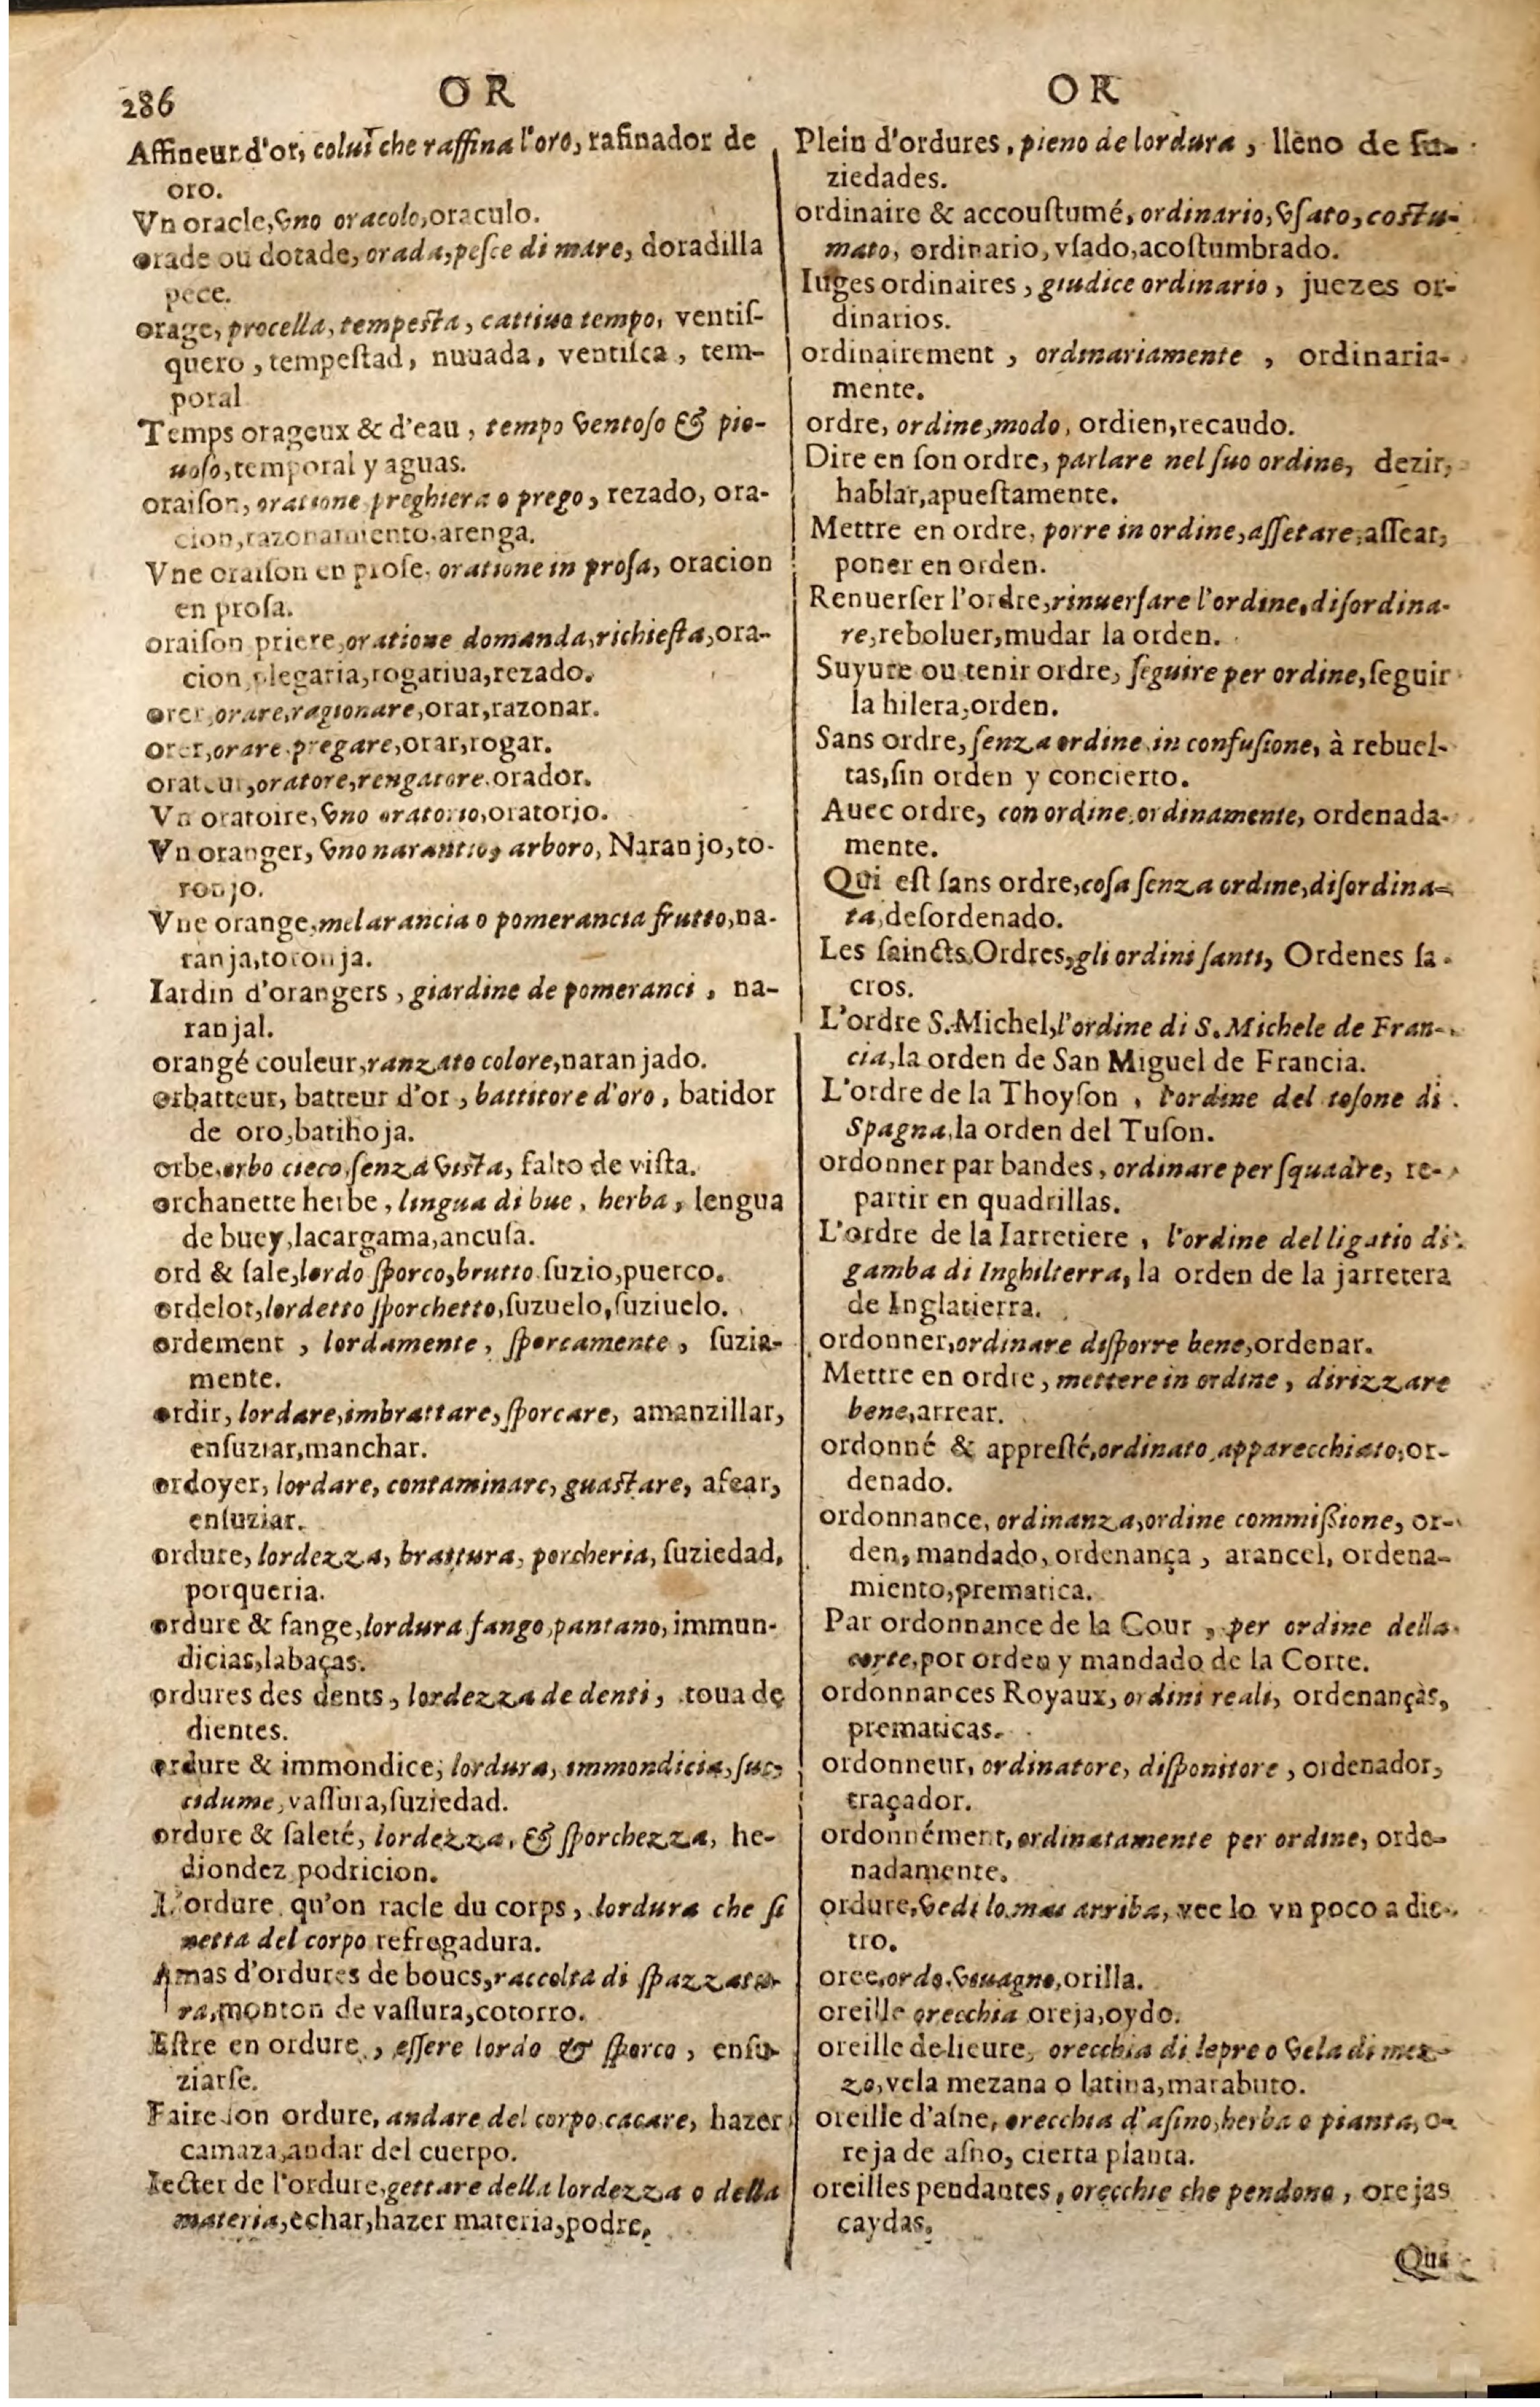 286
OR
Affineur d'or, colui che raffina l'oro, rafinador de
oro.
Vn oracle, vno oracolo, oraculo.
orade ou dorade, orada, peſce di mare, doradilla
pece.
orage, procella, tempeſta, cattiuo tempo, ventiſ-
quero, tempeſtad, nuuada, ventiſca, tem-
poral
Temps orageux & d'eau, tempo ventoſo & pio-
uoſo, temporal y aguas.
oraiſon, oratione preghiera o prego, rezado, ora-
cion, razonamiento, arenga.
Vne oraiſon en proſe, oratione in proſa, oracion
en proſa.
oraiſon priere, oratione domanda, richieſta, ora-
cion, plegaria, rogatiua, rezado.
orer, orare, ragionare, orar, razonar.
orer, orare, pregare, orar, rogar.
orateur, oratore, rengatore, orador.
Vn oratoire, vno oratorio, oratorio.
Vn oranger, vno narantio, arboro, Naranjo, to-
ronjo.
Vne orange, melarancia o pomerancia frutto, na-
ranja, toronja.
Iardin d'orangers, giardine de pomeranci, na-
ranjal.
orangé couleur, ranzato colore, naranjado.
orbatteur, batteur d'or, battitore d'oro, batidor
de oro, batihoja.
orbe, orbo cieco, ſenza viſta, falto de viſta.
orchanette herbe, lingua di bue, herba, lengua
de buey, lacargama, ancuſa.
ord & ſale, lordo ſporco, brutto ſuzio, puerco.
ordelot, lordetto ſporchetto, ſuzuelo, ſuziuelo.
ordement, lordamente, ſporcamente, ſuzia-
mente.
ordir, lordare, imbrattare, ſporcare, amanzillar,
enſuziar, manchar.
ordoyer, lordare, contaminare, guaſtare, afear,
enſuziar.
ordure, lordezza, brattura, porcheria, ſuziedad,
porqueria.
ordure & fange, lordura fango, pantano, immun-
dicias, labaças.
ordures des dents, lordezza de denti, toua de
dientes.
ordure & immondice, lordura, immondicia, ſuc-
cidume, vaſſura, ſuziedad.
ordure & ſaleté, lordezza, & ſporchezza, he-
diondez podricion.
L'ordure qu'on racle du corps, lordura che ſi
netta del corpo refregadura.
Amas d'ordures de boucs, raccolta di ſpazzatu-
ra, monton de vaſſura, cotorro.
Eſtre en ordure, eſſere lordo & ſporco, enſu-
ziarſe.
Faire ſon ordure, andare del corpo cacare, hazer
camaza, andar del cuerpo.
Iecter de l'ordure, gettare della lordezza o della
materia, echar, hazer materia, podre.
OR
Plein d'ordures, pieno de lordura, lleno de ſu-
ziedades.
ordinaire & accouſtumé, ordinario, vſato, coſtu-
mato, ordinario, vſado, acoſtumbrado.
Iuges ordinaires, giudice ordinario, juezes or-
dinarios.
ordinairement, ordinariamente, ordinaria-
mente.
ordre, ordine, modo, ordien, recaudo.
Dire en ſon ordre, parlare nel ſuo ordine, dezir,
hablar, apueſtamente.
Mettre en ordre, porre in ordine, aſſetare, aſſear,
poner en orden.
Renuerſer l'ordre, rinuerſare l'ordine, diſordina-
re, reboluer, mudar la orden.
Suyure ou tenir ordre, ſeguire per ordine, ſeguir
la hilera, orden.
Sans ordre, ſenza ordine in confuſione, à rebuel-
tas, ſin orden y concierto.
Auec ordre, con ordine, ordinamente, ordenada-
mente.
Qui eſt ſans ordre, coſa ſenza ordine, diſordina-
ta, deſordenado.
Les ſaincts Ordres, gli ordini ſanti, Ordenes ſa-
cros.
L'ordre S. Michel, l'ordine di S. Michele de Fran-
cia, la orden de San Miguel de Francia.
L'ordre de la Thoyſon, l'ordine del toſone di
Spagna, la orden del Tuſon.
ordonner par bandes, ordinare per ſquadre, re-
partir en quadrillas.
L'ordre de la Iarretiere, l'ordine del ligatio di
gamba di Inghilterra, la orden de la jarretera
de Inglatierra.
ordonner, ordinare diſporre bene, ordenar.
Mettre en ordre, mettere in ordine, dirizzare
bene, arrear.
ordonné & appreſté, ordinato, apparecchiato, or-
denado.
ordonnance, ordinanza, ordine commißione, or-
den, mandado, ordenança, arancel, ordena-
miento, prematica.
Par ordonnance de la Cour, per ordine della
corte, por orden y mandado de la Corte.
ordonnances Royaux, ordini reali, ordenanças,
prematicas.
ordonneur, ordinatore, diſponitore, ordenador,
traçador.
ordonnément, ordinatamente per ordine, orde-
nadamente.
ordure, vedi lo mas arriba, vee lo vn poco a die-
tro.
oree, ordo, viuagno, orilla.
oreille orecchia oreja, oydo.
oreille de lieure, orecchia di lepre o vela di mez-
zo, vela mezana o latina, marabuto.
oreille d'aſne, orecchia d'aſino, herba o pianta, o-
reja de aſno, cierta planta.
oreilles pendantes, orecchie che pendono, orejas
caydas.
Qui